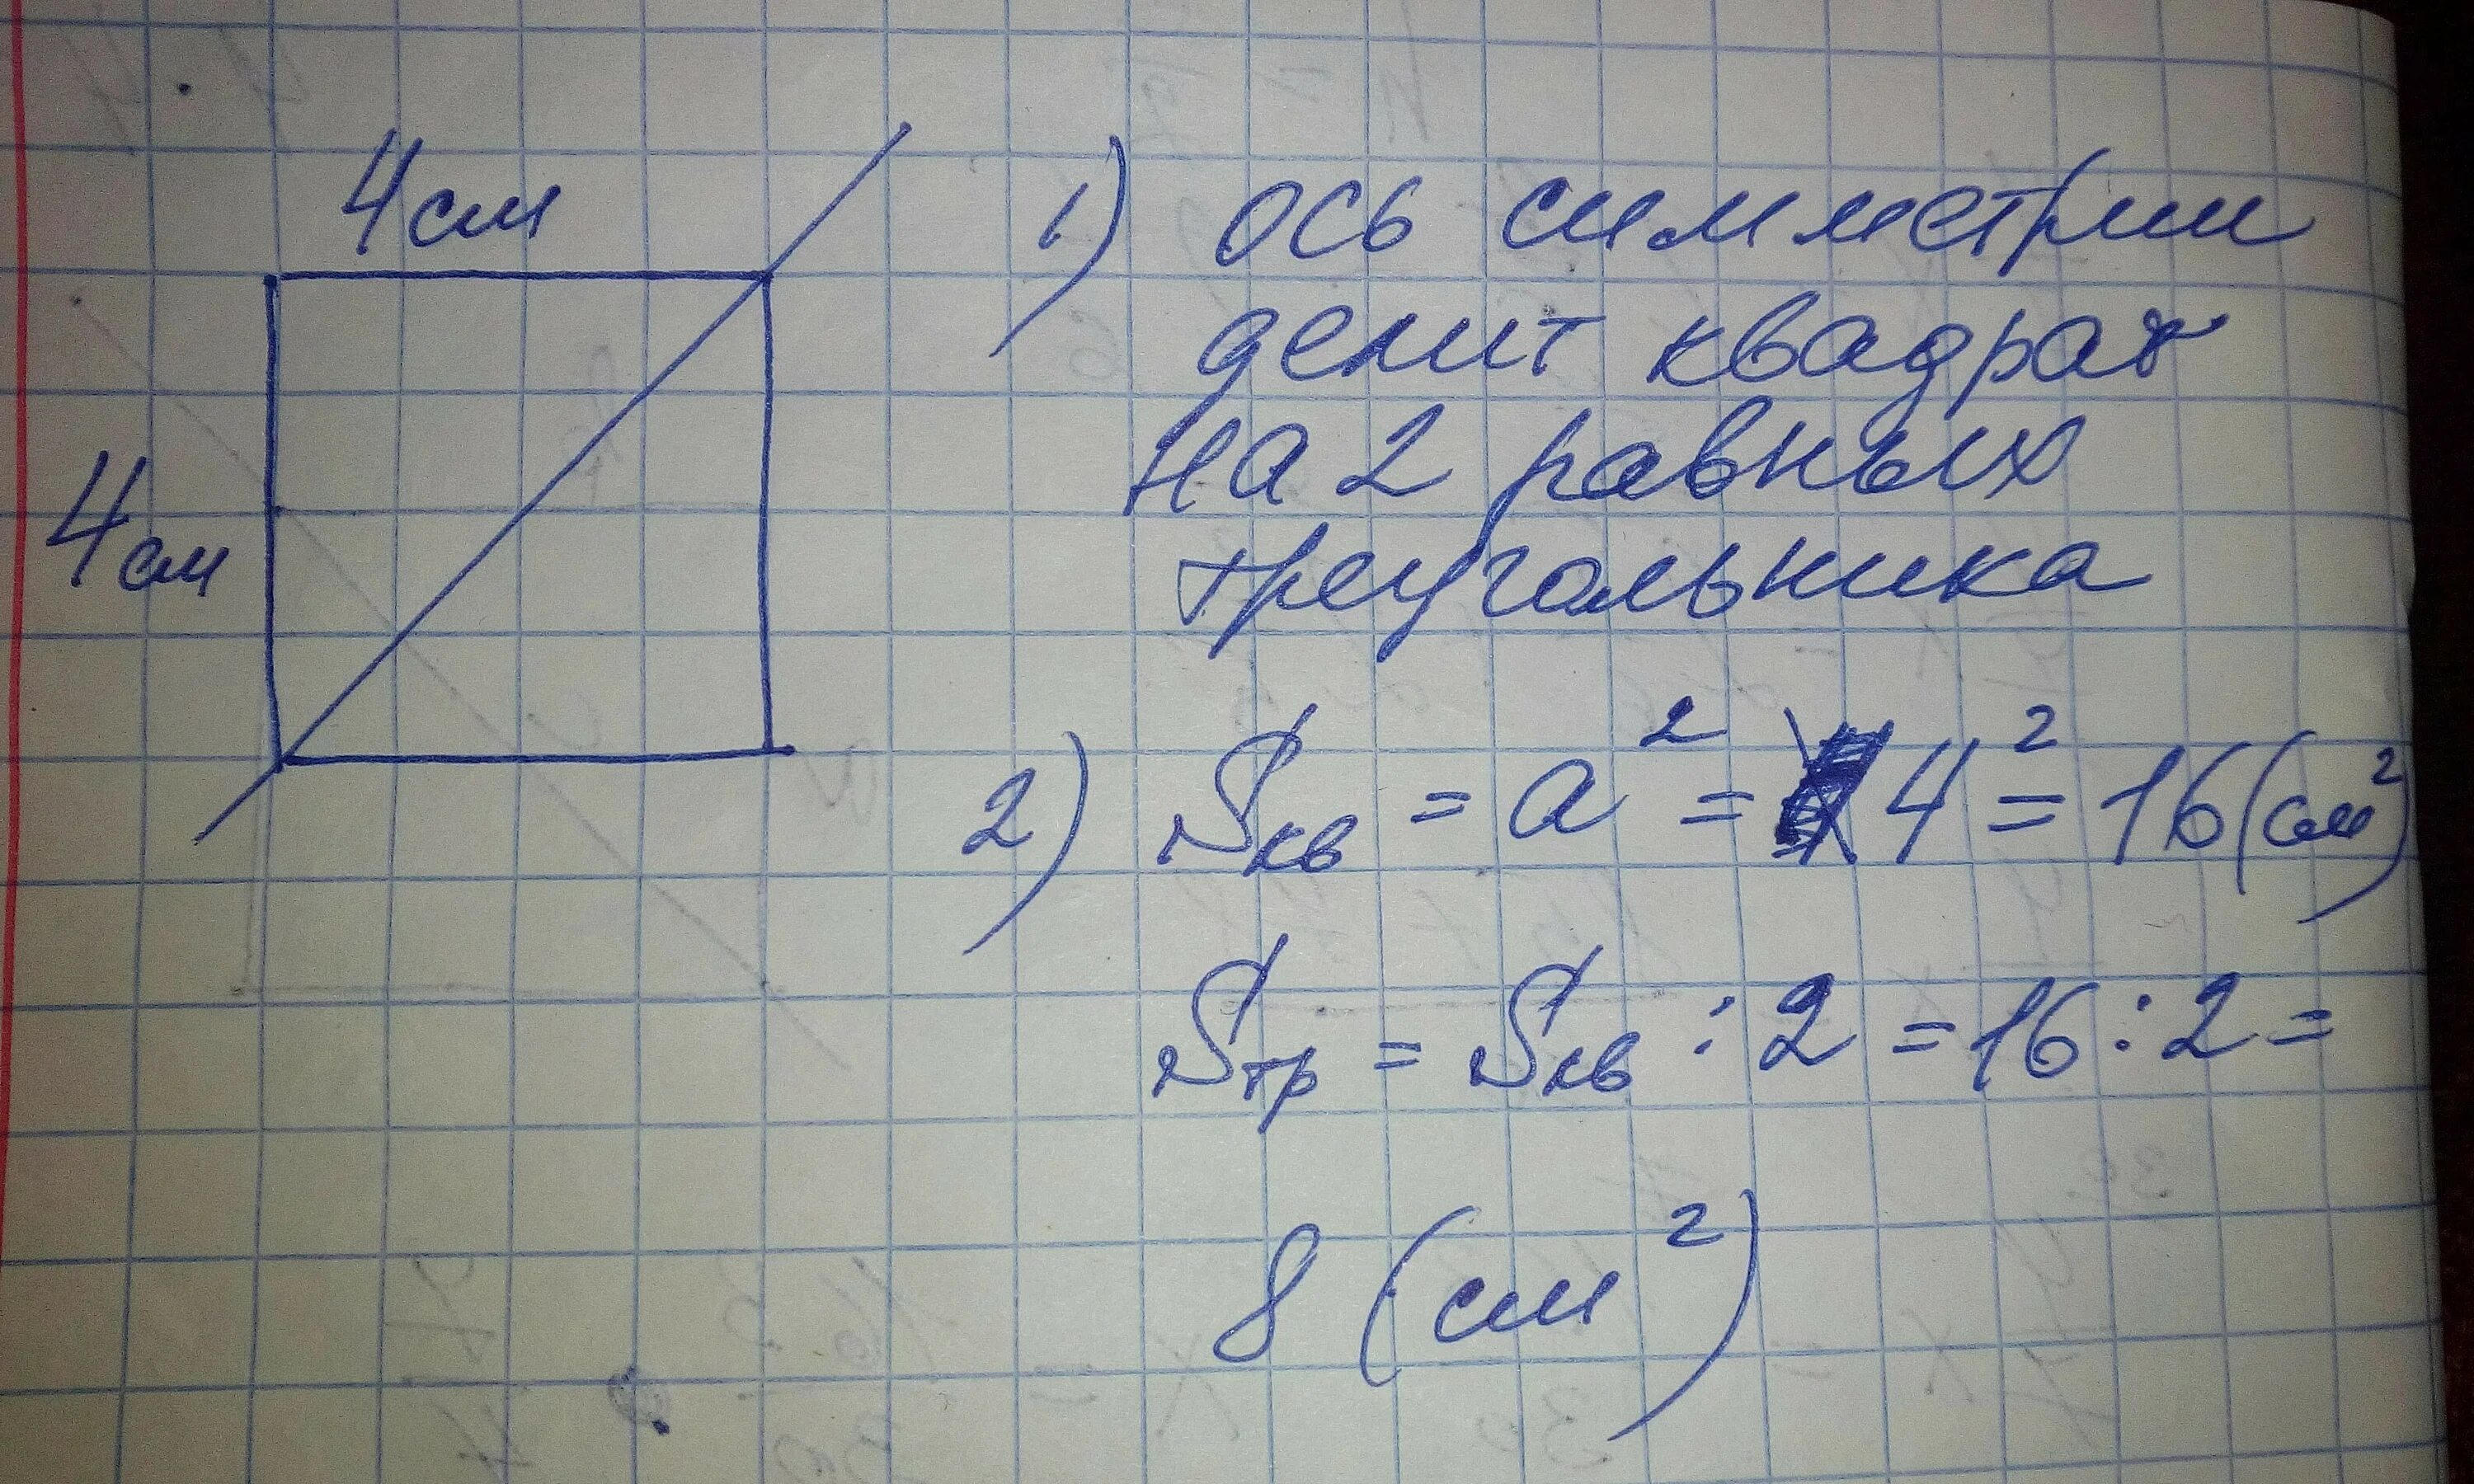 4см
4см
1) ось симметрии
делит квадрат
на 2 равных
треугольника
2) Sкв = a² = 4² = 16 (см²)
Sтр = Sкв : 2 = 16 : 2 =
8 (см²)